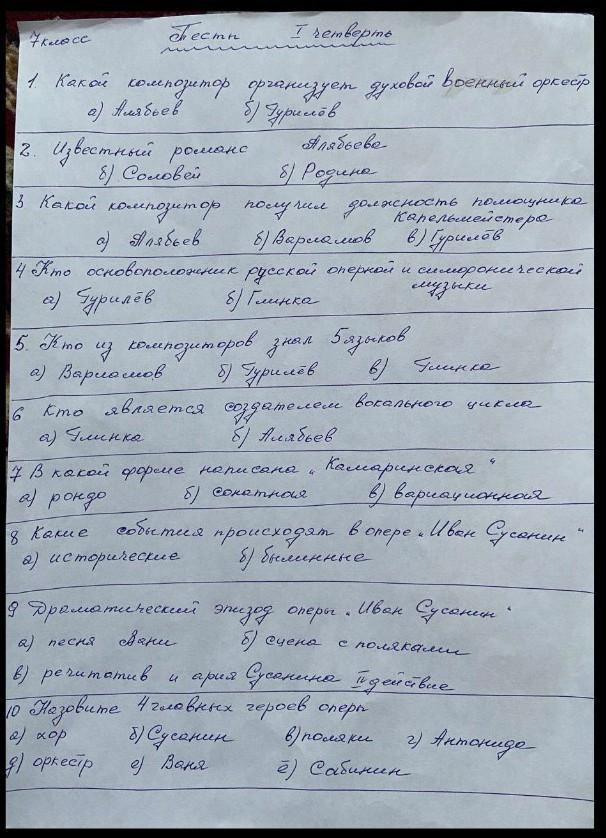 7 класс Тесты I четверть
1. Какой композитор организует духовой военный оркестр
а) Алябьев б) Гурилёв
2. Известный романс Алябьева
б) Соловей б) Родина
3 Какой композитор получил должность помощника
капельмейстера
а) Алябьев б) Варламов в) Гурилёв
4 Кто основоположник русской оперной и симфонической
музыки
а) Гурилёв б) Глинка
5. Кто из композиторов знал 5 языков
а) Варламов б) Гурилёв в) Глинка
6 Кто является создателем вокального цикла
а) Глинка б) Алябьев
7 В какой форме написана „Камаринская"
а) рондо б) сонатная в) вариационная
8 Какие события происходят в опере „Иван Сусанин"
а) исторические б) былинные
9 Драматический эпизод оперы „Иван Сусанин"
а) песня Вани б) сцена с поляками
в) речитатив и ария Сусанина IV действие
10 Назовите 4 главных героев оперы
а) хор б) Сусанин в) поляки г) Антонида
д) оркестр е) Ваня ё) Собинин